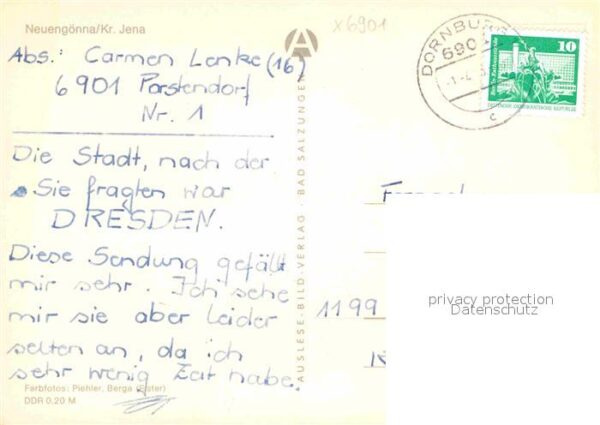 Neuengönna/Kr. Jena
x6901
Abs.: Carmen Lenke (16)
6901 Porstendorf
Nr. 1
Die Stadt, nach der
Sie fragten war
DRESDEN.
Diese Sendung gefällt
mir sehr. Ich sehe
mir sie aber leider
selten an, da ich
sehr wenig Zeit habe.
Farbfotos: Piehler, Berga (Elster)
DDR 0,20 M
AUSLESE-BILD-VERLAG · BAD SALZUNGEN
DORNBURG
690
c
10
DEUTSCHE DEMOKRATISCHE REPUBLIK
1199
privacy protection
Datenschutz